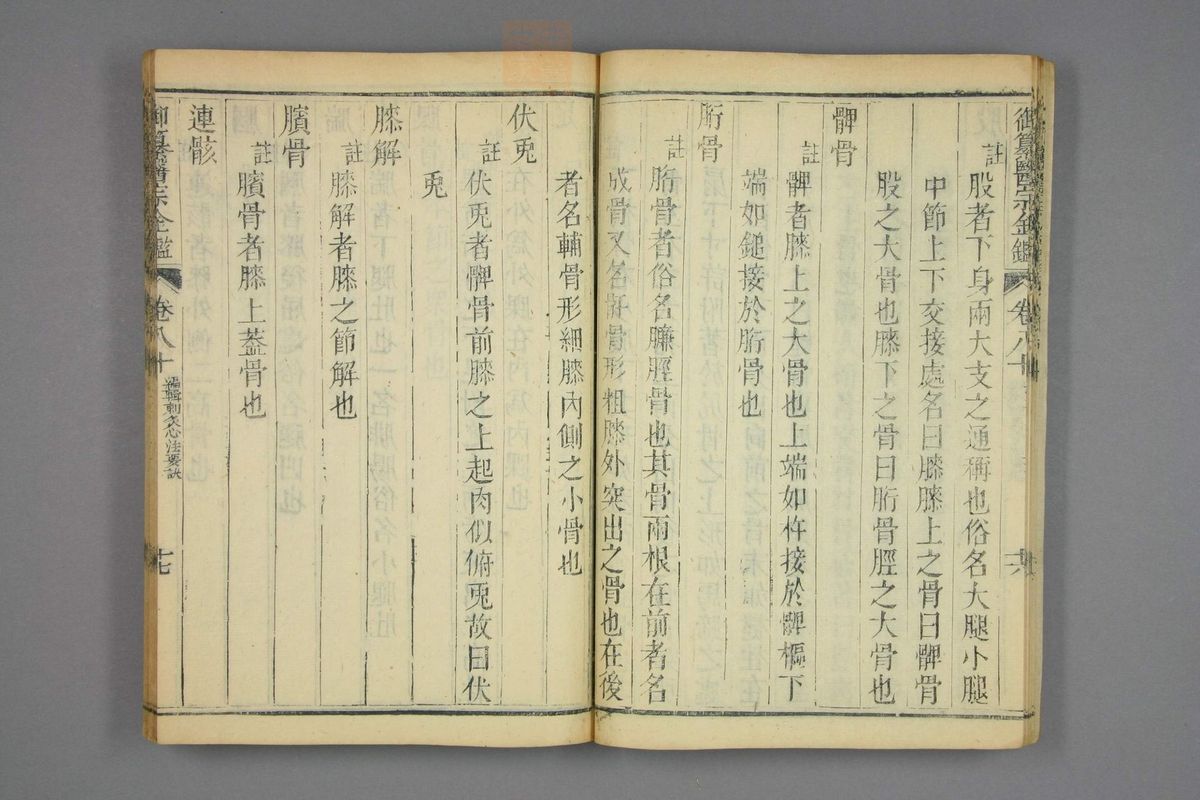 御纂醫宗金鑑 卷八十 十六
註 股者下身兩大支之通稱也俗名大腿小腿
中節上下交接處名曰膝膝上之骨曰髀骨
股之大骨也膝下之骨曰胻骨脛之大骨也
髀骨
註 髀者膝上之大骨也上端如杵接於髀樞下
端如鎚接於胻骨也
胻骨
註 胻骨者俗名臁脛骨也其骨兩根在前者名
成骨又名骭骨形粗膝外突出之骨也在後
者名輔骨形細膝內側之小骨也
伏兎
註 伏兎者髀骨前膝之上起肉似俯兎故曰伏
兎
膝解
註 膝解者膝之節解也
臏骨
註 臏骨者膝上葢骨也
連骸
御纂醫宗金鑑 卷八十 編輯刺灸心法要訣 十七